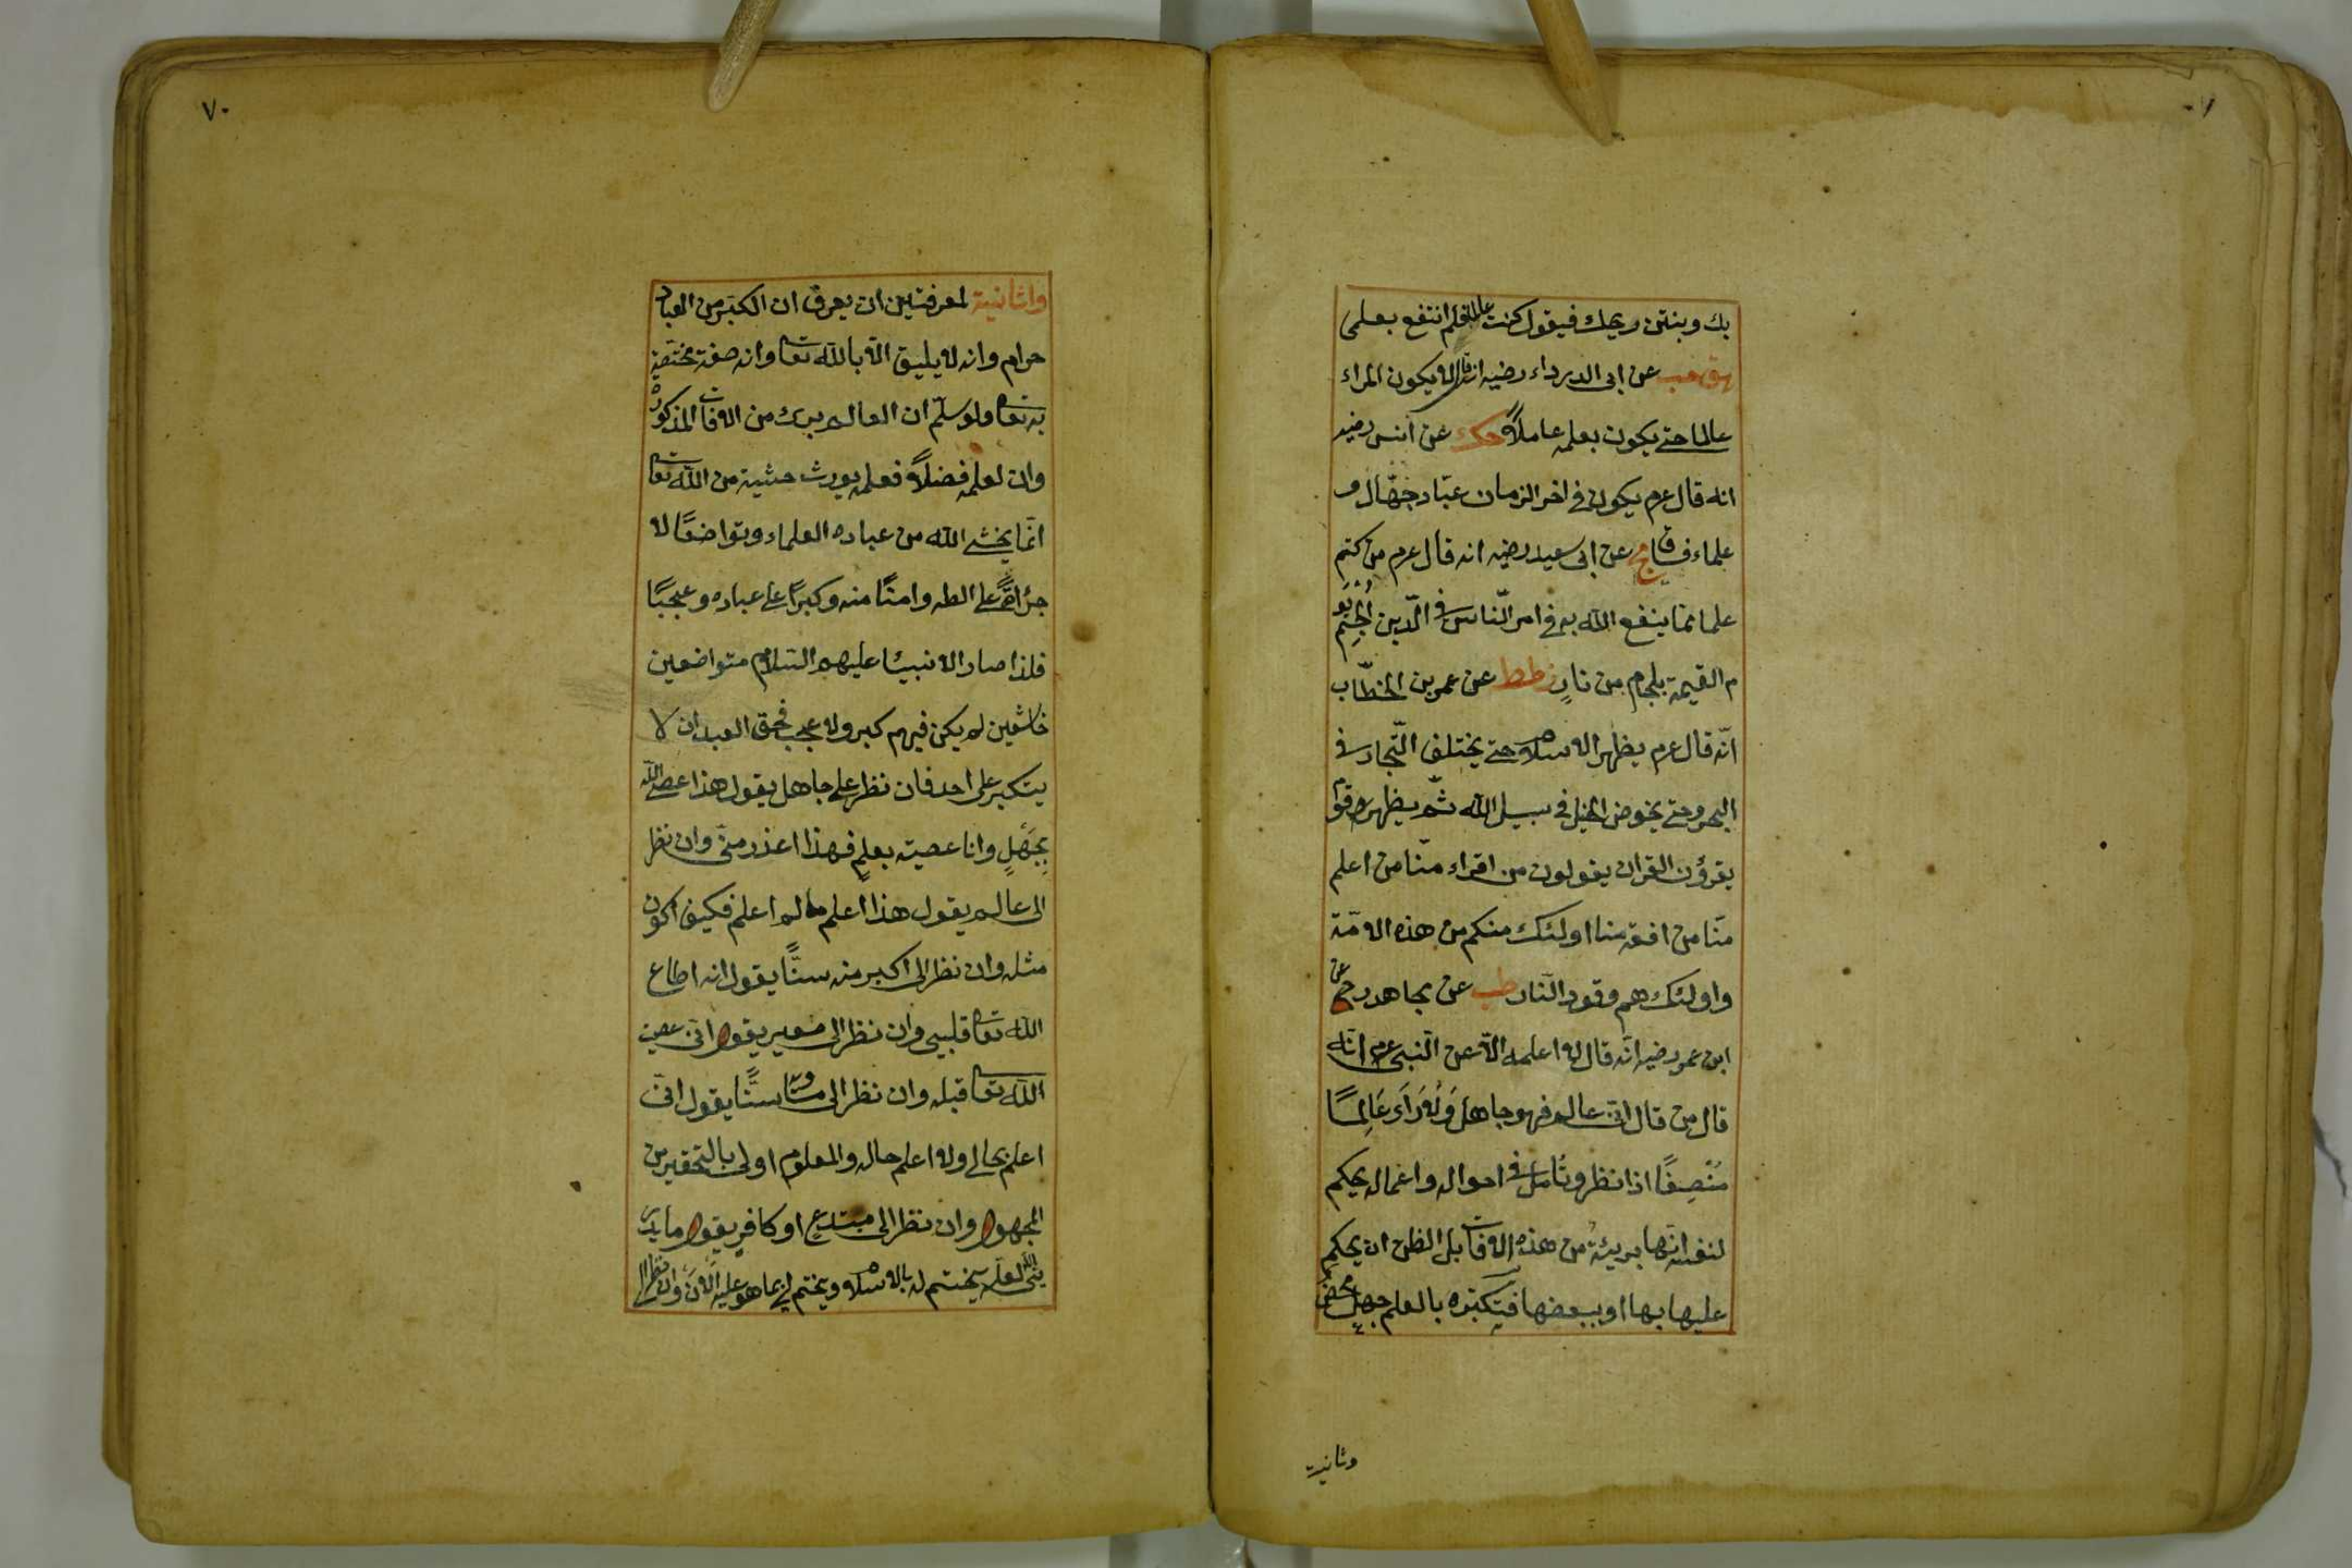 بك وبنتن ريحك فيقول كنت عالما فلم انتفع بعلمى
هق حب عن ابى الدرداء رضيه انه قال لا يكون المراء
عالما حتى يكون بعلمه عاملاً حك عن انس رضيه
انه قال عرم يكون فى اخر الزمان عبّاد جهّال و
علماء فساق مج عن ابى سعيد رضيه انه قال عرم من كتم
علما مما ينفع الله به فى امر النّاس فى الدّين اُلْجِمَ يَوْ
م القيمة بلجام من نارٍ ز طط عن عمر بن الخطّاب
انّه قال عرم يظهر الاسلام حتى يختلف التّجار فى
البحر وحتى يخوض الخيل فى سبيل الله ثمّ يظهر قوم
يقرؤن القران يقولون من اقراء منّا من اعلم
منّا من افقه منا اولئك منكم من هذه الامّة
واولئك هم وقود النّار طب عن مجاهد رح عن
ابن عمر رضيه انّه قال لا اعلمه الّا عن النّبى عرم انّه
قال من قال انّى عالم فهو جاهل وَلَا اَرَاى عَالِمًا
مُنْصِفًا اذا نظر وتأمل فى احواله واعماله يحكم
لنفسه انّها بريئة من هذه الافات بل الظن ان يحكم
عليها بها او ببعضها فتكبّره بالعلم جهل محض
وثانية
٧٠
والثانية لمعرفتين ان يعرف ان الكبّر من العباد
حرام وانه لا يليق الّا بالله تعا وانه صفة مختصّة
به تعا ولو سلّم ان العالم برئ من الافات المذكورة
وان لعلمه فضلاً فعلمه يورث خشية من الله تعا
انّما يخشى الله من عباده العلماء وتواضعًا لا
جرأةً على الله وامنًا منه وكبرًا على عباده وعجبًا
فلذا صار الانبيئا عليهم السّلام متواضعين
خاشعين لم يكن فيهم كبر ولا عجب فحق العبد ان لا
يتكبر على احد فان نظر على جاهل يقول هذا عصى الله
بِجَهْلٍ وانا عصيته بعلمٍ فهذا اعذر منّى وان نظر
الى عالم يقول هذا اعلم ما لم اعلم فكيف اكون
مثله وان نظر الى اكبر منه سنًّا يقول انه اطاع
الله تعا قبلى وان نظر الى صغير يقول انّى عصيت
الله تعا قبله وان نظر الى مساويه سنًّا يقول انّى
اعلم بحالى ولا اعلم حاله والمعلوم اولى بالتحقير من
المجهول وان نظر الى مبتدع او كافر يقول ما يدر
ينى لعلّه يختم له بالاسلام ويختم لى بما هو عليه الان وان نظر الى